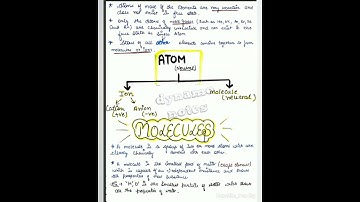 * Atoms of most of the elements are very reactive and
does not exist in free state.
* Only the atoms of noble gases (such as He, Ne, Ar, Kr, Xe
and Rn) are chemically unreactive and can exist in the
free state as single atom
* Atoms of all other elements combine together to form
molecules or ions.
ATOM
(neutral)
Ion
molecule
(neutral)
Cation
(+ve)
Anion
(-ve)
dynamic
notes
MOLECULES
* A molecule is a group of two or more atoms which are
chemically bonded
* A molecule is the smallest part of matter
which is capable of an independent existence and shows
all properties of that substance
Eg → "H₂O" is the smallest particle of water which shows
all the properties of water.